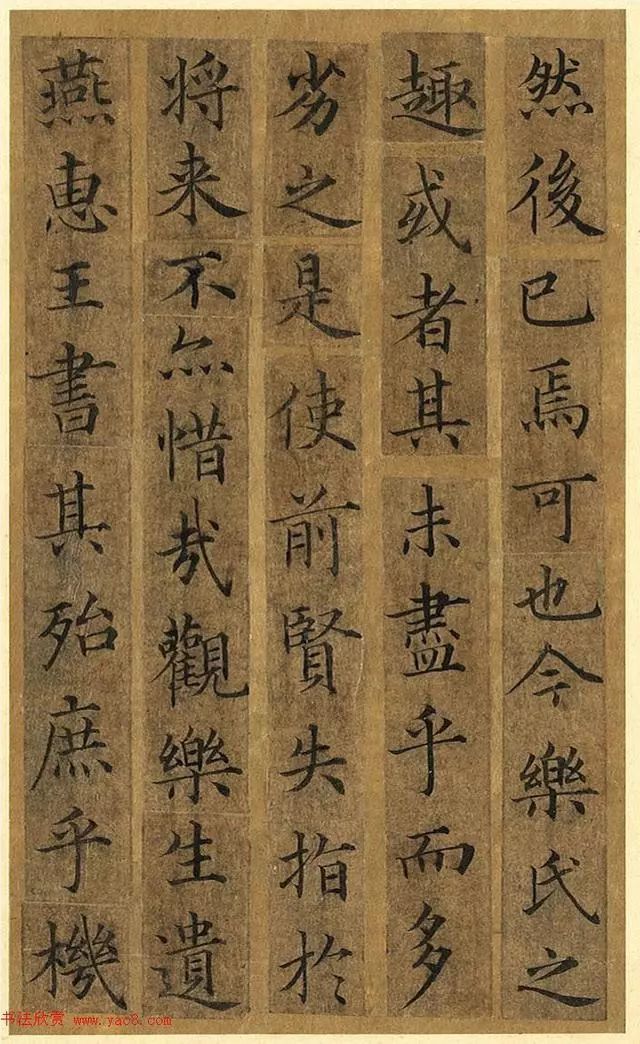 然後已焉可也今樂氏之
趣或者其未盡乎而多
劣之是使前賢失指於
将来不亦惜哉觀樂生遺
燕恵王書其殆庶乎機
书法欣赏 www.yac8.com